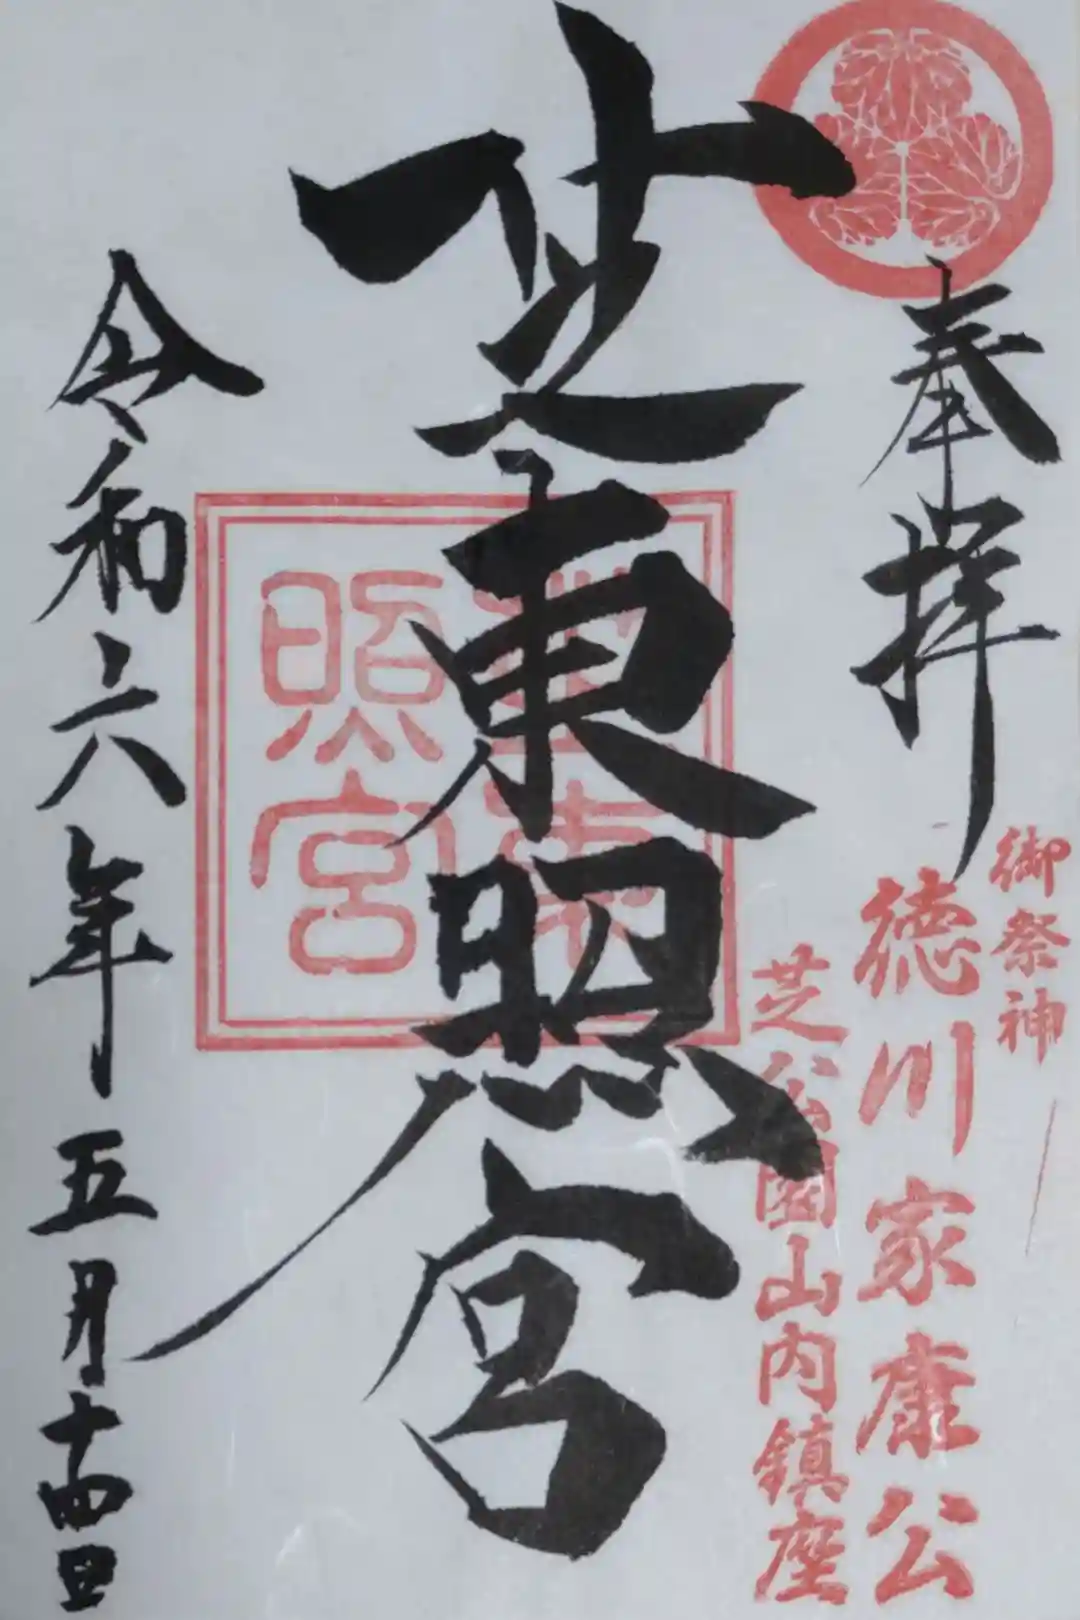 奉拝
御祭神
徳川家康公
芝公園山内鎮座
芝東照宮
芝東
照宮
令和六年五月十四日